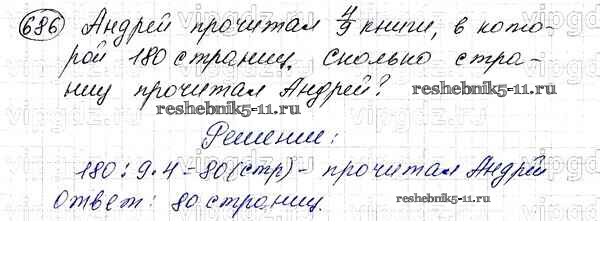 686 Андрей прочитал 4/9 книги, в кото-
рой 180 страниц. Сколько стра-
ниц прочитал Андрей? reshebnik5-11.ru
reshebnik5-11.ru
Решение:
180 : 9 · 4 = 80 (стр) - прочитал Андрей
Ответ: 80 страниц. reshebnik5-11.ru